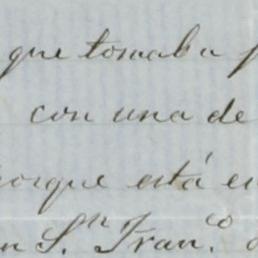 que tomaba p
con una de
porque está en
n S.ⁿ Fran.ᶜᵒ